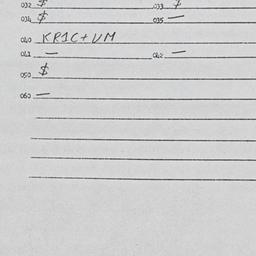 032 $ 033 $
034 $ 035 —
040 KR1C+UM
041 — 042 —
050 $
060 —